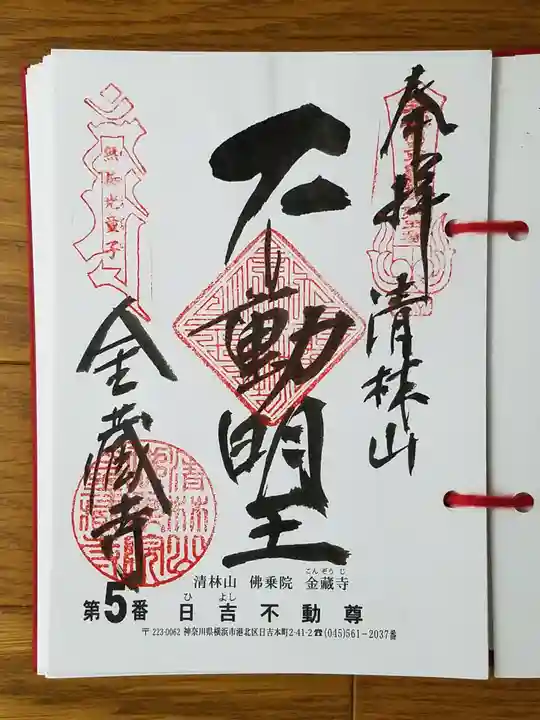 奉拝
清林山
不動明王
金蔵寺
無垢光童子
清林山 佛乗院 金藏寺
こんぞうじ
第5番 日吉不動尊
ひよし
〒223-0062 神奈川県横浜市港北区日吉本町2-41-2☎(045)561-2037番